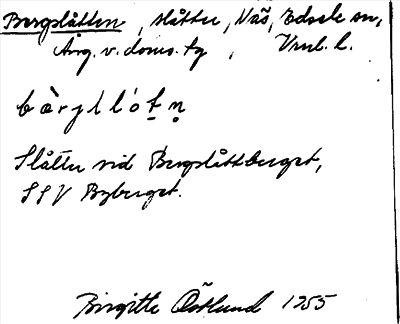 Bergslåtten, slåtter, Näs, Edsele sn,
Ång. v. doms. tg, Vnrl. l.
bàrjllótn
Slåtter vid Bergslåttberget,
SSV Byberget.
Birgitta Östlund 1955